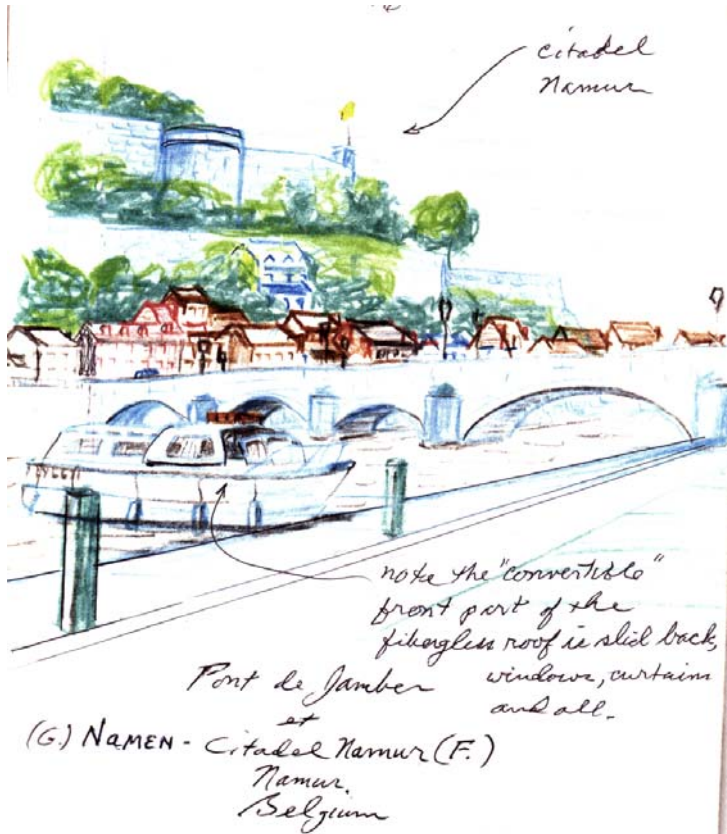 citadel
Namur
note the "convertible"
front part of the
fibergless roof is slid back,
windows, curtains
and all.
Pont de Jamber
et
(G.) NAMEN - Citadel Namur (F.)
Namur.
Belgium